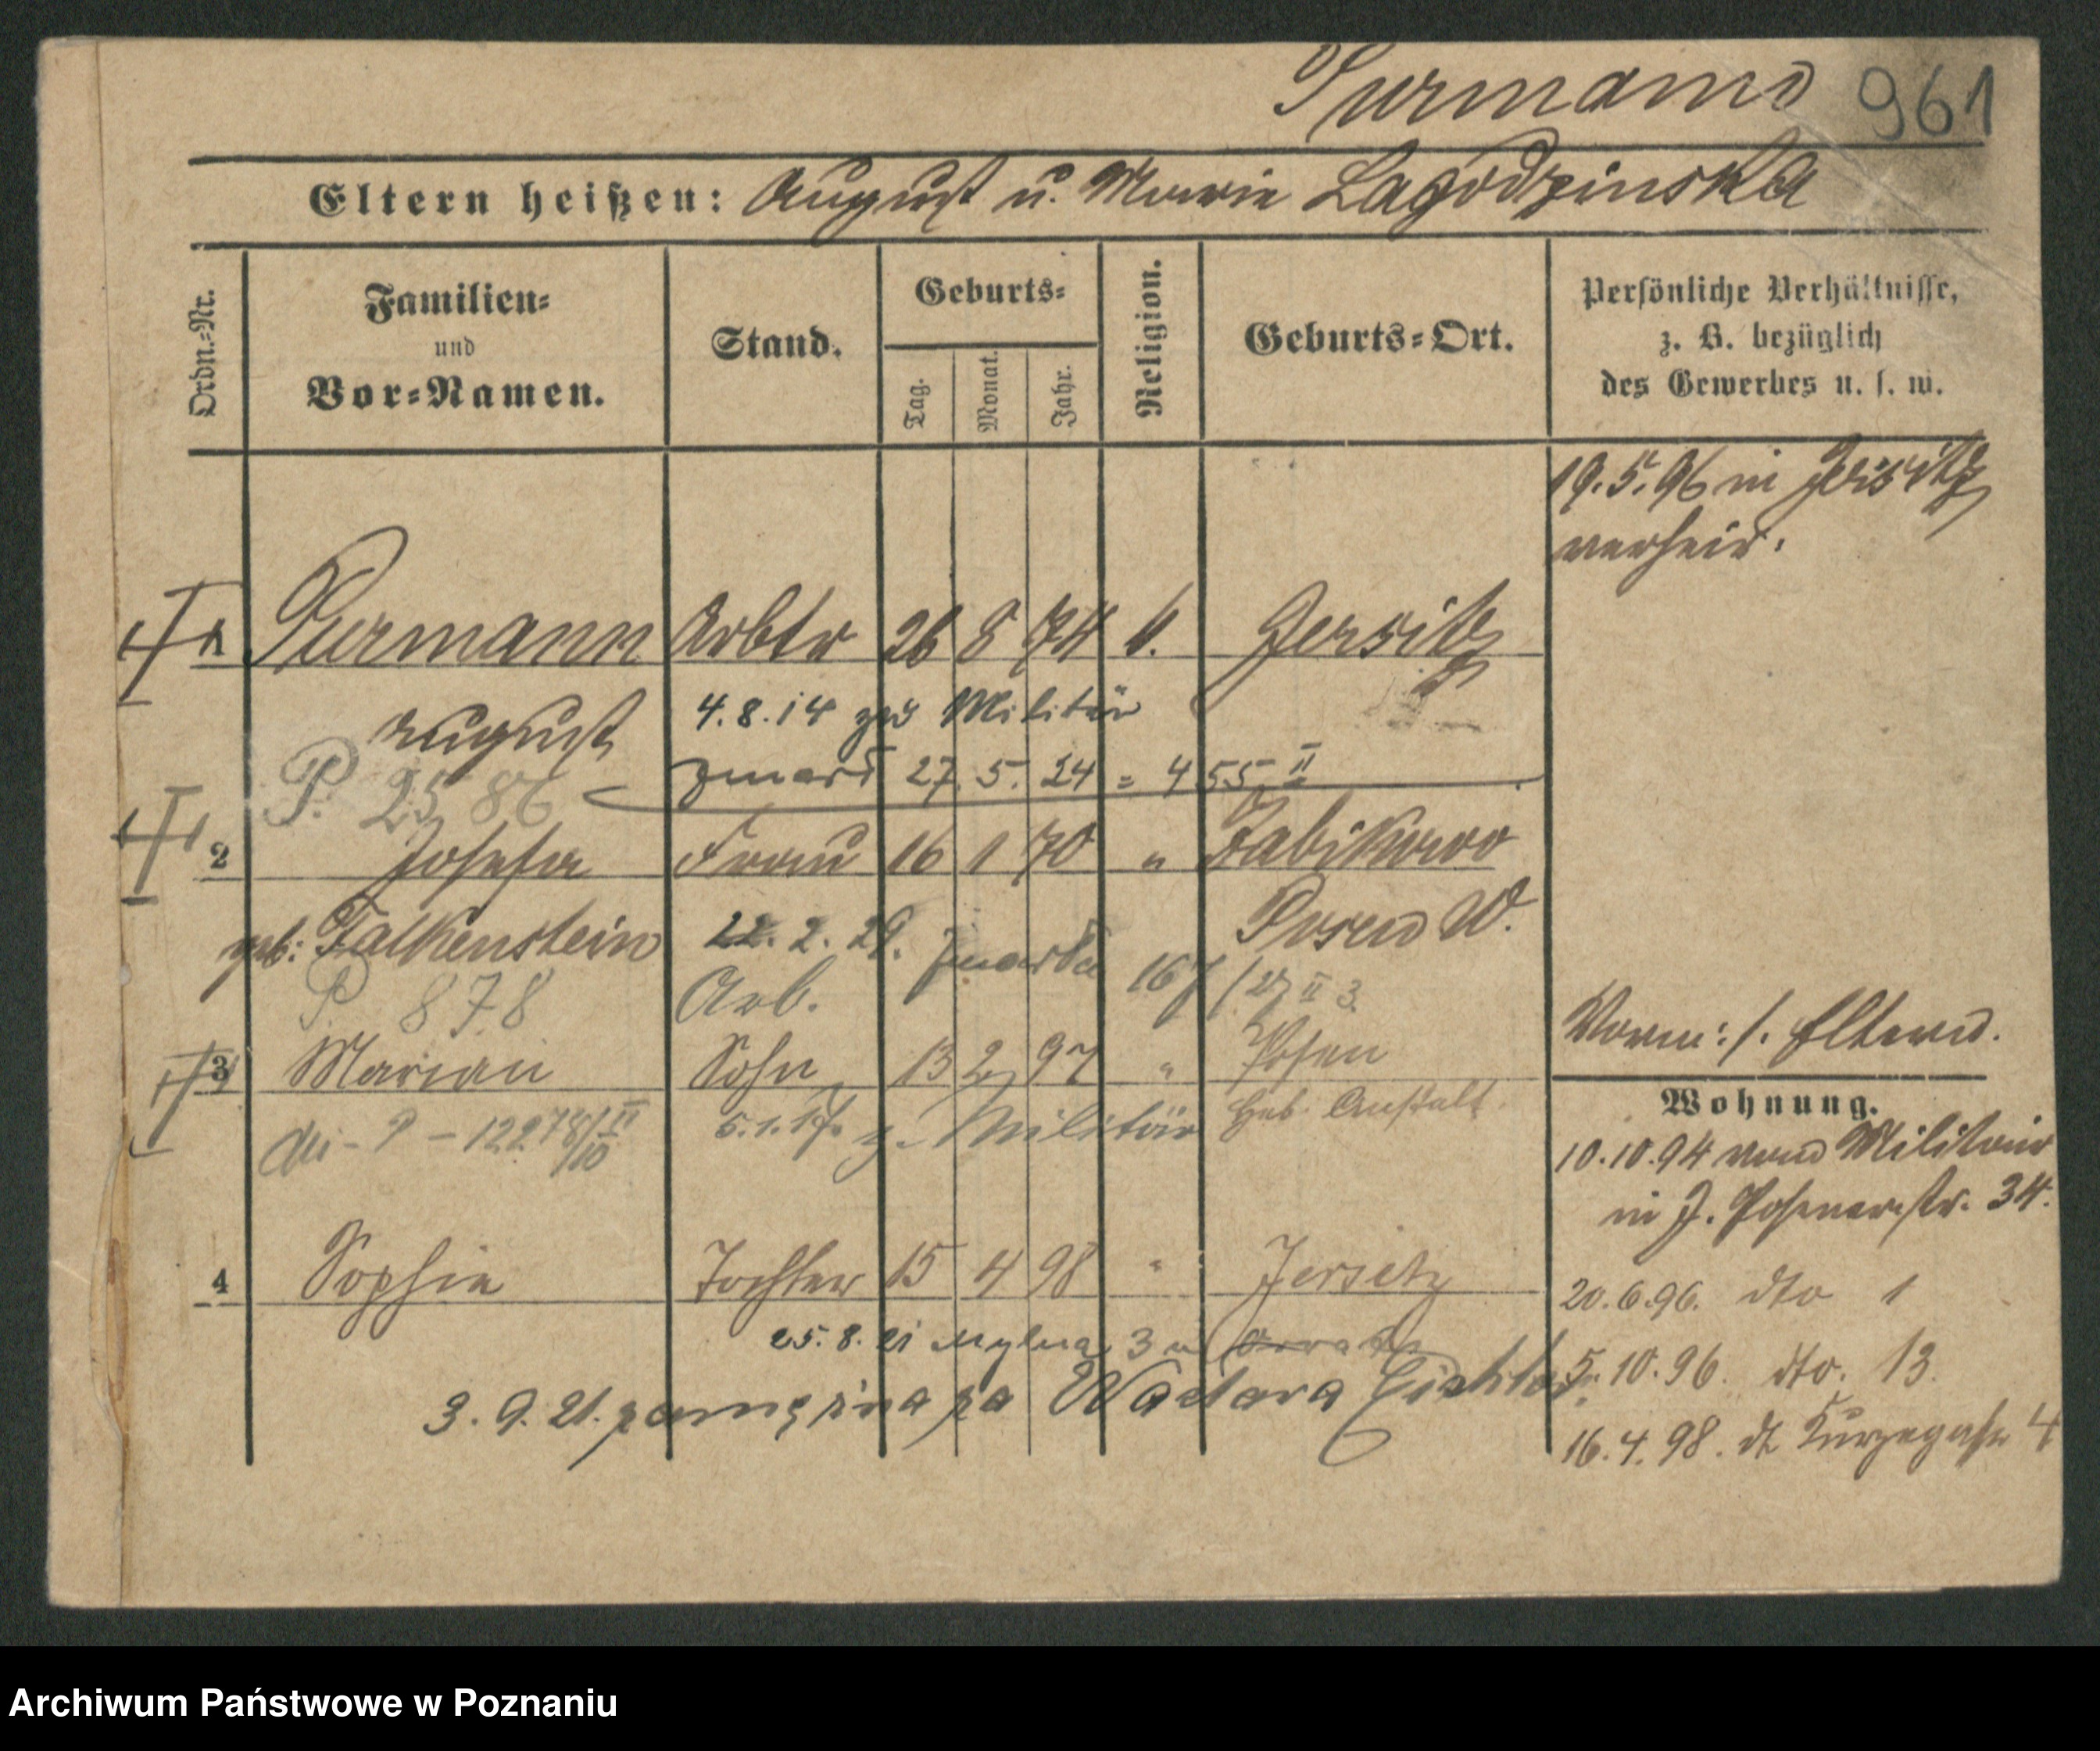 Purmann 961
Eltern heißen: August u. Marie Lagodzinska
Ordn.-Nr.
Familien-
und
Vor-Namen.
Stand.
Geburts-
Tag.
Monat.
Jahr.
Religion.
Geburts-Ort.
Persönliche Verhältnisse,
z. B. bezüglich
des Gewerbes u. s. w.
19.5.96 in Jersitz
verheir.
1 Purmann Arbtr 26 8 74 k. Jersitz
August 4.8.14 zum Militär
P. 2586 zmarł 27. 5. 24 = 455 II
2 Josefa Frau 16 1 70 " Zabikowo
geb: Falkenstein 22. 2. 29. zmarła 167/29 II 3. Posen W.
P 878 Arb.
3 Marian Sohn 13 2 97 " Posen
P - 12278/II/10 5.1.17. z. Militär Heb. Anstalt.
4 Sophie Tochter 15 4 98 " Jersitz
25.8.21 Mylna 3
3.9.21. zamężna za Wacława
Vorm: s. Eltern.
Wohnung.
10.10.94 vom Militair
in J. Posenerstr. 34.
20.6.96. dto 1
5.10.96. dto. 13.
16.4.98. dt Kurzegasse 4